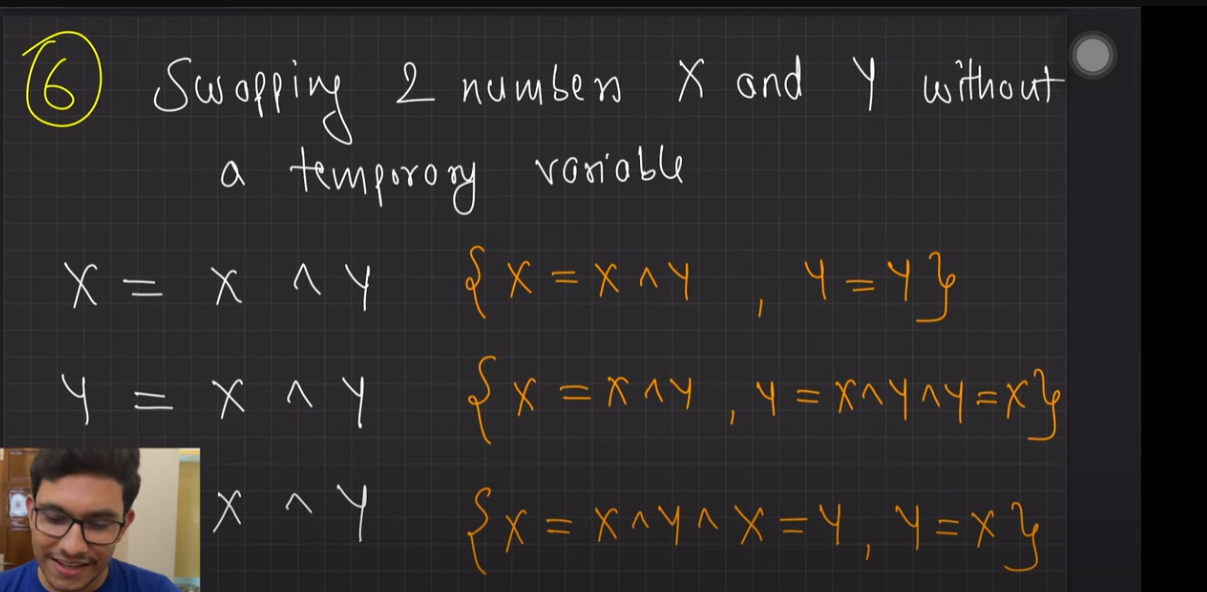 6 Swapping 2 numbers X and Y without
a temporary variable
X = X ^ Y { X = X ^ Y , Y = Y }
Y = X ^ Y { X = X ^ Y , Y = X ^ Y ^ Y = X }
X ^ Y { X = X ^ Y ^ X = Y , Y = X }